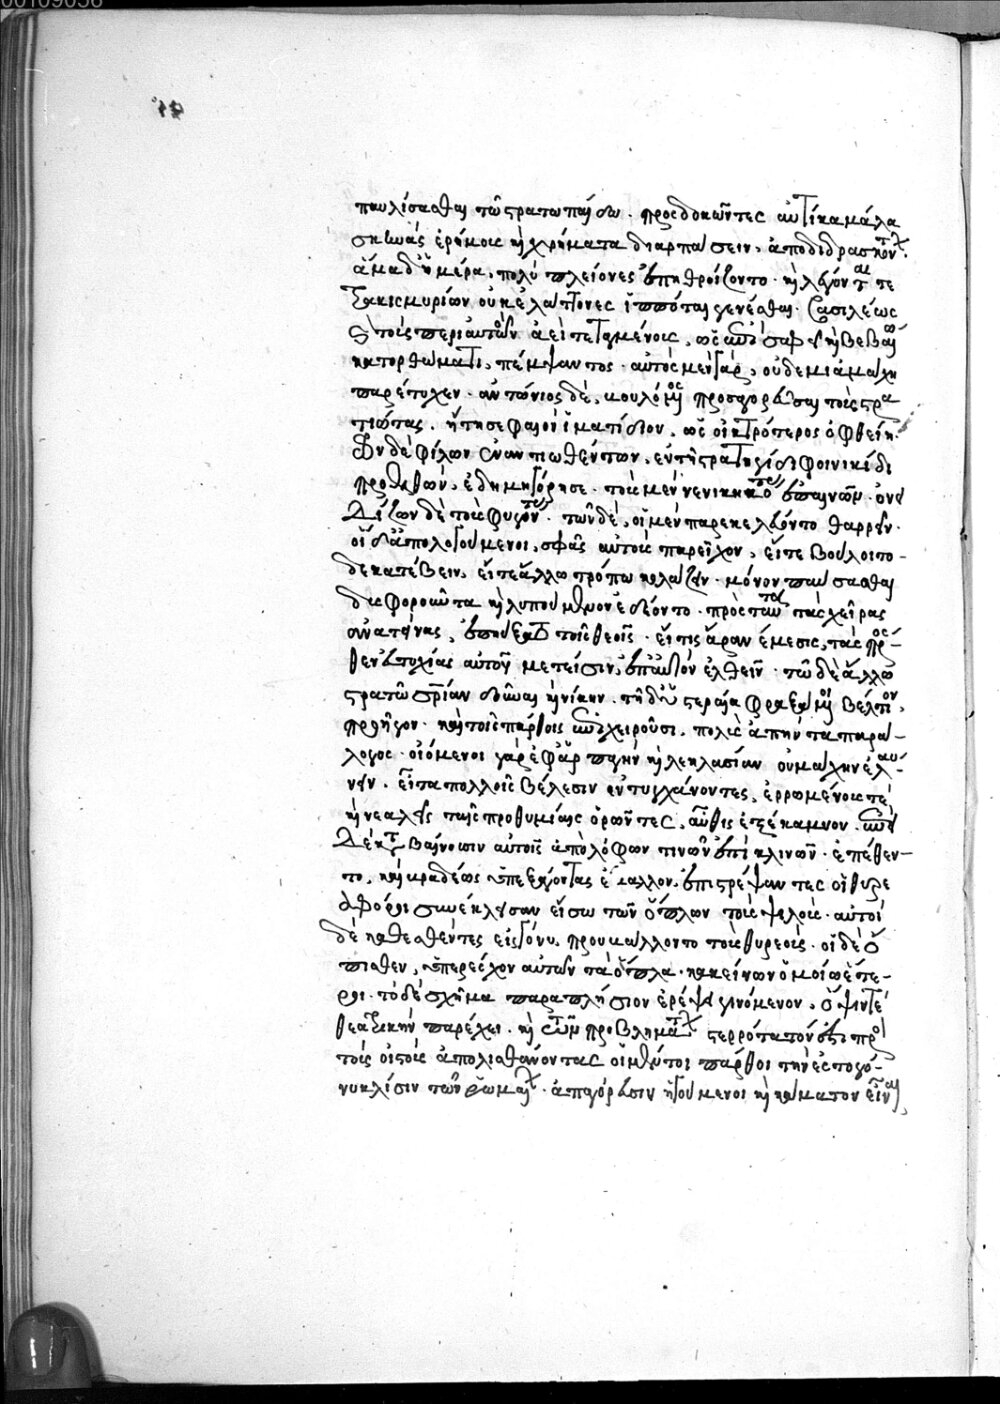 παυλίσασθαι τῷ στρατοπέδῳ· προσδοκῶντες αὐτίκα μάλα
σκηνὰς ἐρήμους καὶ χρήματα διαρπάσειν, ἀποδιδρασκόντων.
ἅμα δ' ἡμέρα, πολὺ πλείονες ἐπηθροίζοντο· καὶ λέγονται τε
τρακισμυρίων οὐκ ἐλάττονες ἱππόται γενέσθαι· βασιλέως
καὶ τοὺς περὶ αὑτὸν ἀεὶ τεταγμένους, ὡς ἐπὶ σαφεῖ καὶ βεβαίῳ
κατορθώματι, πέμψαντος· αὐτὸς μὲν γὰρ, οὐδεμιᾷ μάχῃ
παρέτυχεν· ἀντώνιος δὲ, βουλόμενος προσαγορεῦσαι τοὺς στρα
τιώτας, ᾔτησε φαιὸν ἱμάτιον, ὡς οἰκτρότερος ὀφθείη.
τῶν δὲ φίλων ἐναντιωθέντων, ἐν τῇ στρατηγικῇ φοινικίδι
προελθὼν, ἐδημηγόρησε· τοὺς μὲν νενικηκότας ἐπαινῶν· ὀνει
δίζων δὲ τοὺς φυγόντας· τῶν δὲ, οἱ μὲν παρεκελεύοντο θαρρεῖν·
οἱ δ' ἀπολογούμενοι, σφᾶς αὐτοὺς παρεῖχον, εἴτε βούλοιτο
δεκατεύειν, εἴτε ἄλλῳ τρόπῳ κολάζειν· μόνον παύσασθαι
δυσφοροῦντα καὶ λυπούμενον ἐδέοντο· πρὸς ταῦτα τὰς χεῖρας
ἀνατείνας, ἐπεύξατο τοῖς θεοῖς· εἴ τις ἄρα νέμεσις, τὰς πρόσ-
θεν εὐτυχίας αὐτοῦ μέτεισιν, ἐπ' αὐτὸν ἐλθεῖν· τῷ δὲ ἄλλῳ
στρατῷ σωτηρίαν διδόναι καὶ νίκην. τῇ δ' ὑστεραίᾳ φραξάμενοι βέλτιον,
προῆγον· καὶ τοῖς πάρθοις ἐπιχειροῦσι, πολὺς ἀπήντα παρά-
λογος· οἰόμενοι γὰρ ἐφ' ἁρπαγὴν καὶ λεηλασίαν οὐ μάχην ἐλαύ-
νειν. εἶτα πολλοῖς βέλεσιν ἐντυγχάνοντες, ἐρρωμένους τε
καὶ νεαλεῖς ταῖς προθυμίαις ὁρῶντες, αὖθις ἐξέκαμνον. ἐπεὶ
δὲ καταβαίνουσιν αὐτοῖς ἀπὸ λόφων τινῶν ἐπικλινῶν· ἐπέθεν-
το, καὶ βραδέως ὑπεξάγοντας ἔβαλλον, ἐπιστρέψαντες οἱ θυρε
οφόροι συνέκλεισαν εἴσω τῶν ὅπλων τοὺς ψιλούς· αὐτοὶ
δὲ καθεσθέντες εἰς γόνυ, προυβάλλοντο τοὺς θυρεούς· οἱ δὲ ὄ
πισθεν, ὑπερεῖχον αὐτῶν τὰ ὅπλα· κἀκείνων ὁμοίως ἕτε-
ροι· τὸ δὲ σχῆμα παραπλήσιον ἐρέψει γινόμενον, ὄψιν τε
θεατρικὴν παρέχει. καὶ τῶν προβλημάτων στερρότατόν ἐστι πρὸς
τοὺς οἰστοὺς ἀπολισθάνοντας οἱ μέντοι πάρθοι τὴν εἰς τὸ γό-
νυ κλίσιν τῶν ῥωμαίων· ἀπαγόρευσιν ἡγούμενοι καὶ κάματον εἶναι,